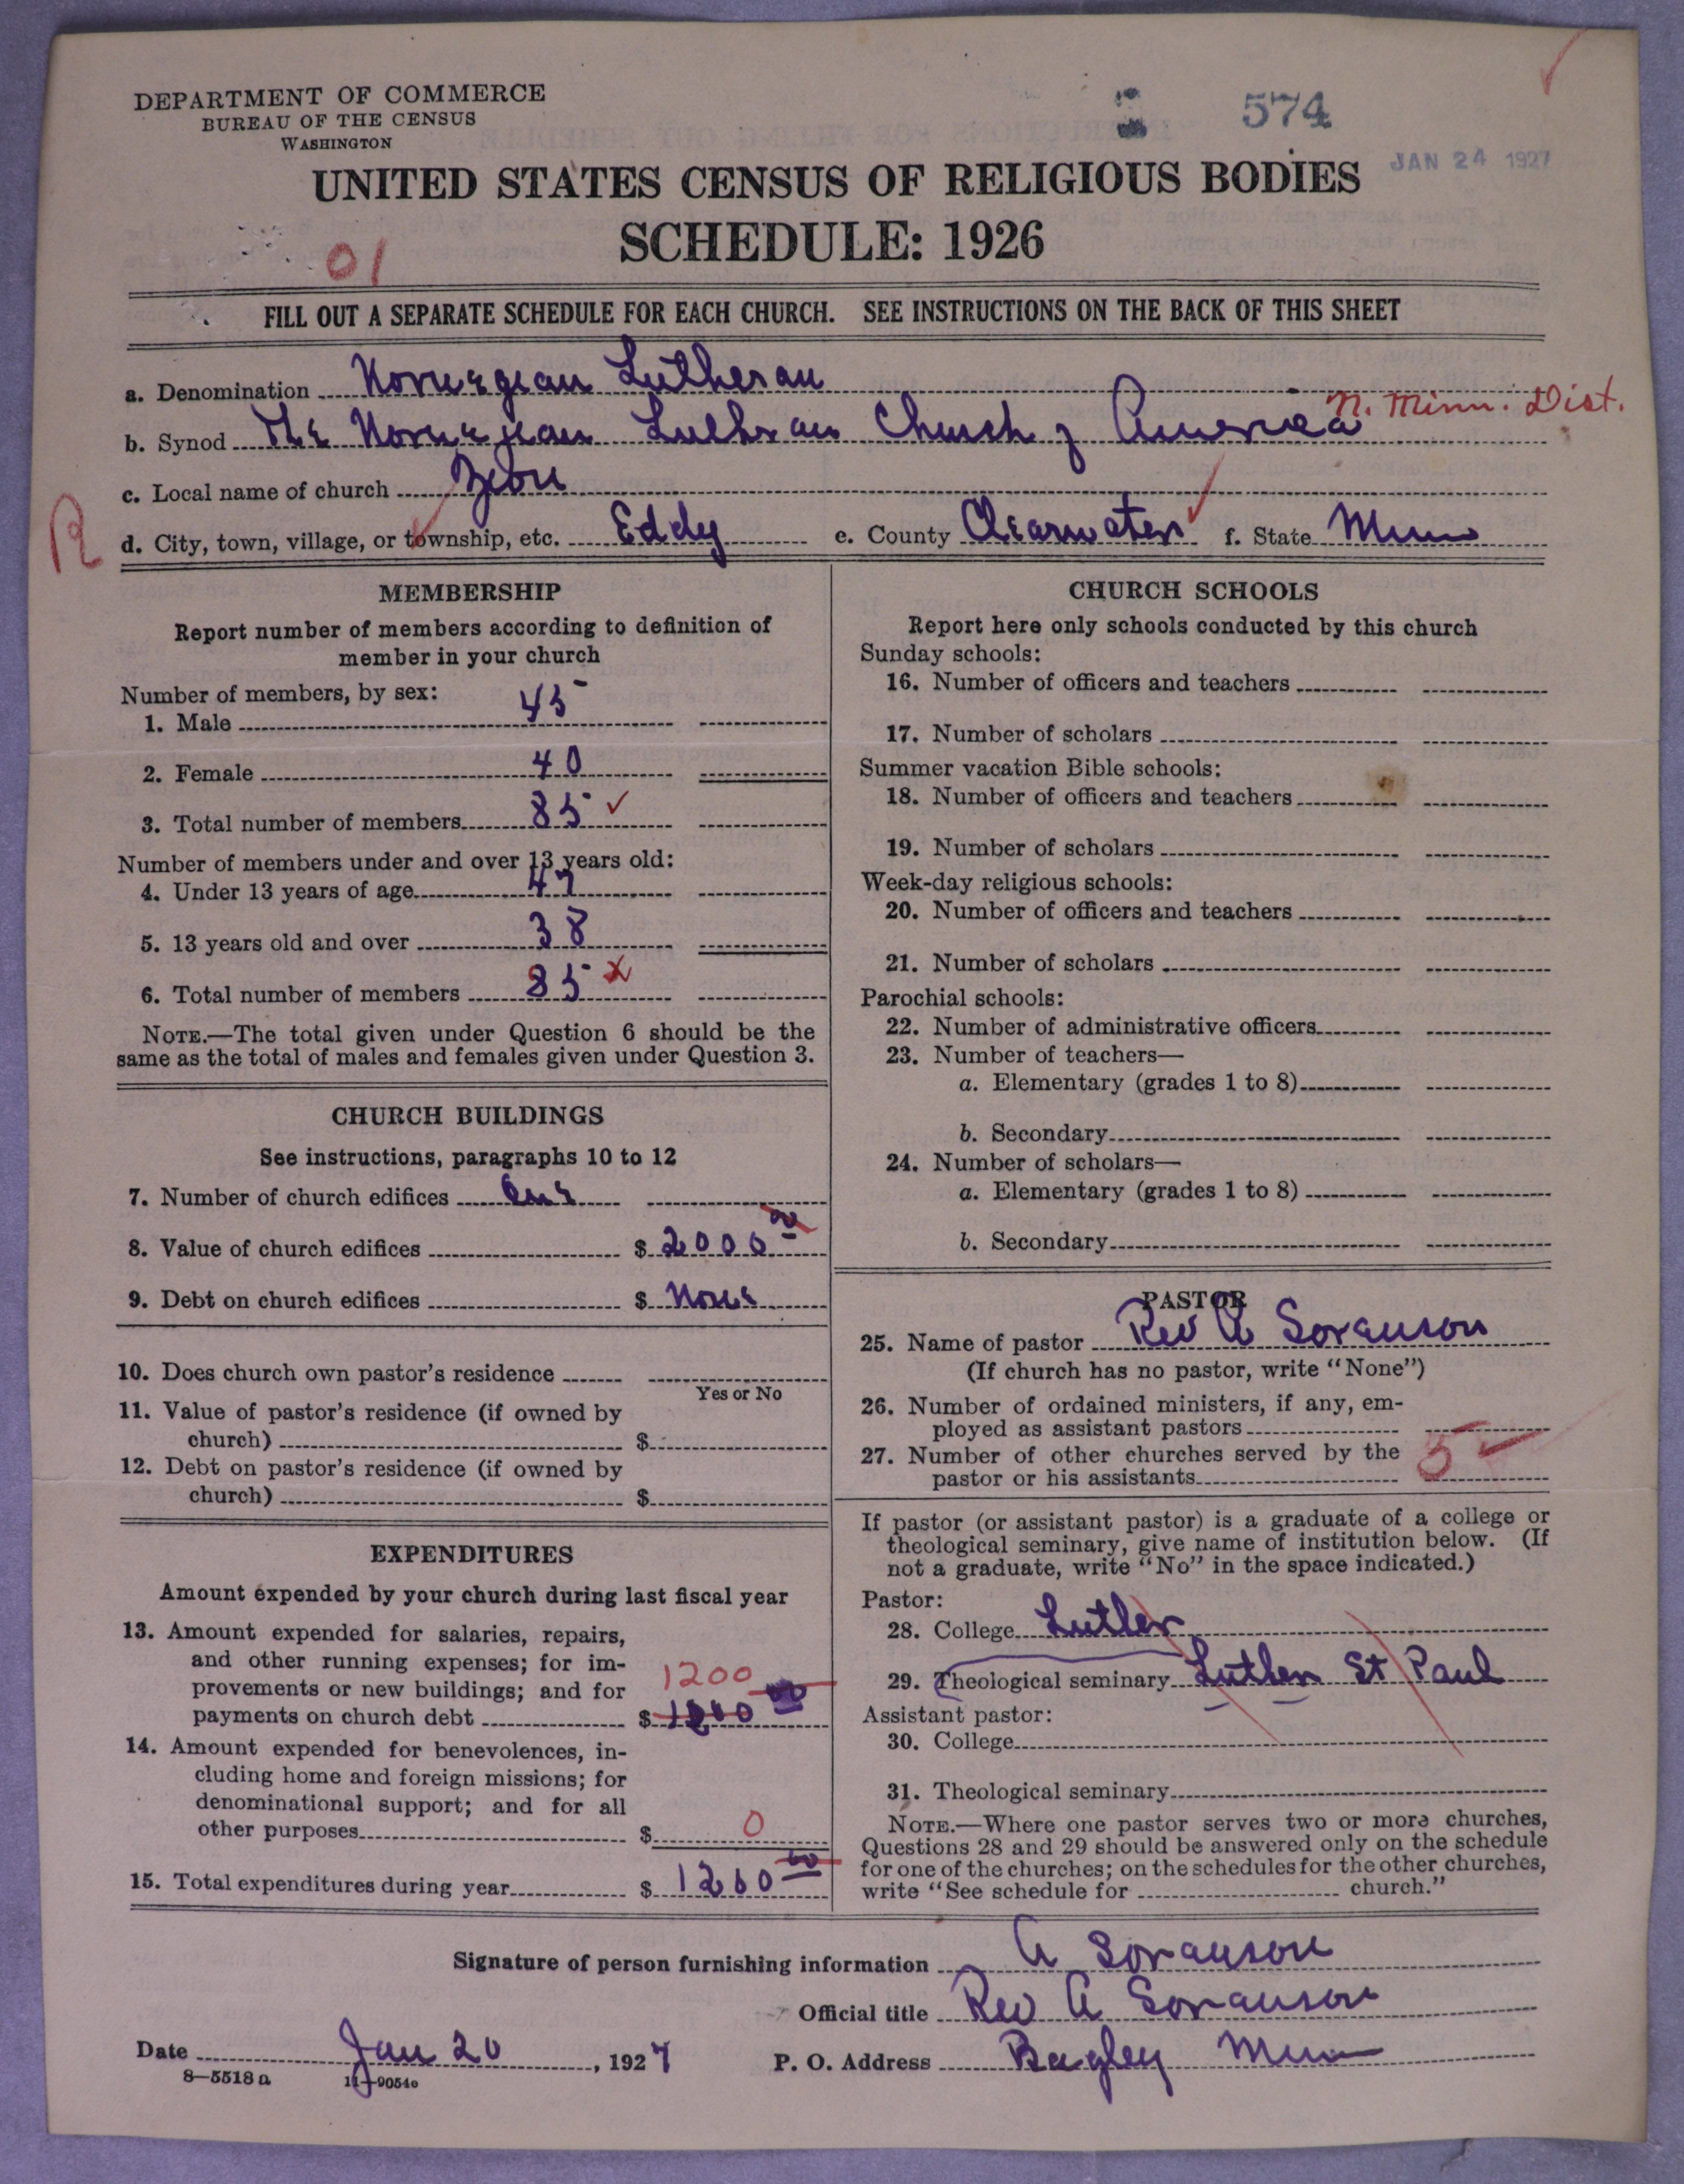 DEPARTMENT OF COMMERCE
BUREAU OF THE CENSUS
WASHINGTON
574
JAN 24 1927
UNITED STATES CENSUS OF RELIGIOUS BODIES
SCHEDULE: 1926
01
FILL OUT A SEPARATE SCHEDULE FOR EACH CHURCH. SEE INSTRUCTIONS ON THE BACK OF THIS SHEET
a. Denomination Norwegian Lutheran
N. Minn. Dist.
b. Synod The Norwegian Lutheran Church of America
c. Local name of church Zion
R
d. City, town, village, or township, etc. Eddy e. County Clearwater f. State Minn
MEMBERSHIP
Report number of members according to definition of
member in your church
Number of members, by sex:
1. Male 45
2. Female 40
3. Total number of members 85 ✓
Number of members under and over 13 years old:
4. Under 13 years of age 47
5. 13 years old and over 38
6. Total number of members 85 x
NOTE.—The total given under Question 6 should be the
same as the total of males and females given under Question 3.
CHURCH BUILDINGS
See instructions, paragraphs 10 to 12
7. Number of church edifices One
8. Value of church edifices $ 2000 00
9. Debt on church edifices $ None
10. Does church own pastor's residence
Yes or No
11. Value of pastor's residence (if owned by
church) $
12. Debt on pastor's residence (if owned by
church) $
EXPENDITURES
Amount expended by your church during last fiscal year
13. Amount expended for salaries, repairs,
and other running expenses; for im-
provements or new buildings; and for 1200
payments on church debt $
14. Amount expended for benevolences, in-
cluding home and foreign missions; for
denominational support; and for all
other purposes $ 0
15. Total expenditures during year $ 1200 00
CHURCH SCHOOLS
Report here only schools conducted by this church
Sunday schools:
16. Number of officers and teachers
17. Number of scholars
Summer vacation Bible schools:
18. Number of officers and teachers
19. Number of scholars
Week-day religious schools:
20. Number of officers and teachers
21. Number of scholars
Parochial schools:
22. Number of administrative officers
23. Number of teachers—
a. Elementary (grades 1 to 8)
b. Secondary
24. Number of scholars—
a. Elementary (grades 1 to 8)
b. Secondary
PASTOR
25. Name of pastor Rev A Soranson
(If church has no pastor, write "None")
26. Number of ordained ministers, if any, em-
ployed as assistant pastors
27. Number of other churches served by the
pastor or his assistants 5
If pastor (or assistant pastor) is a graduate of a college or
theological seminary, give name of institution below. (If
not a graduate, write "No" in the space indicated.)
Pastor:
28. College Luther
29. Theological seminary Luther St Paul
Assistant pastor:
30. College
31. Theological seminary
NOTE.—Where one pastor serves two or more churches,
Questions 28 and 29 should be answered only on the schedule
for one of the churches; on the schedules for the other churches,
write "See schedule for church."
Signature of person furnishing information A Soranson
Official title Rev A Soranson
Date Jan 20, 1927 P. O. Address Bagley Minn
8—5518 a 11—9054c